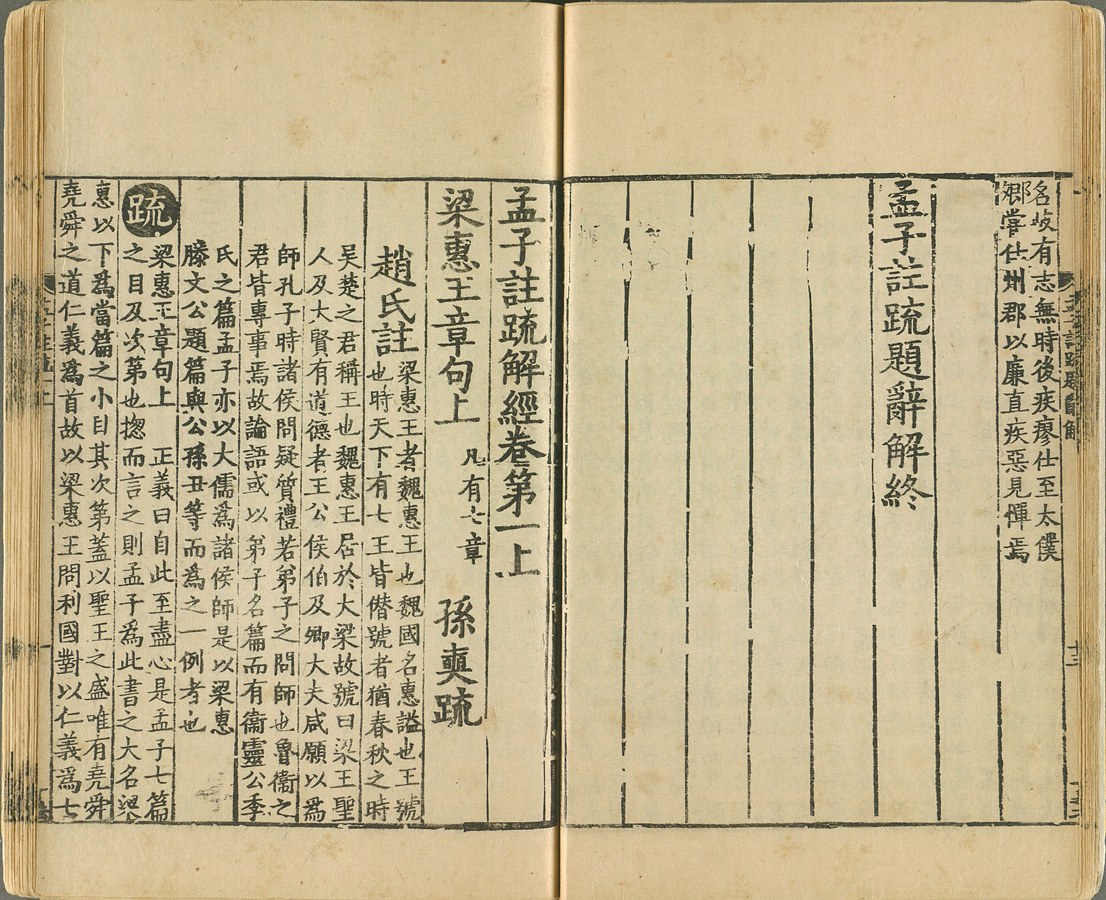 名岐有志無時後疾瘳仕至太僕
卿嘗仕州郡以廉直疾惡見憚焉
孟子註疏題辭解終
孟子註疏解經卷第一上
梁惠王章句上 凡有七章 孫奭疏
趙氏註 梁惠王者魏惠王也魏國名惠謚也王號
也時天下有七王皆僣號者猶春秋之時
吳楚之君稱王也魏惠王居於大梁故號曰梁王聖
人及大賢有道德者王公侯伯及卿大夫咸願以爲
師孔子時諸侯問疑質禮若弟子之問師也魯衞之
君皆專事焉故論語或以弟子名篇而有衞靈公季
氏之篇孟子亦以大儒爲諸侯師是以梁惠
滕文公題篇與公孫丑等而爲之一例者也
疏 梁惠王章句上 正義曰自此至盡心是孟子七篇
之目及次第也揔而言之則孟子爲此書之大名梁
惠以下爲當篇之小目其次第蓋以聖王之盛唯有堯舜
堯舜之道仁義爲首故以梁惠王問利國對以仁義爲七